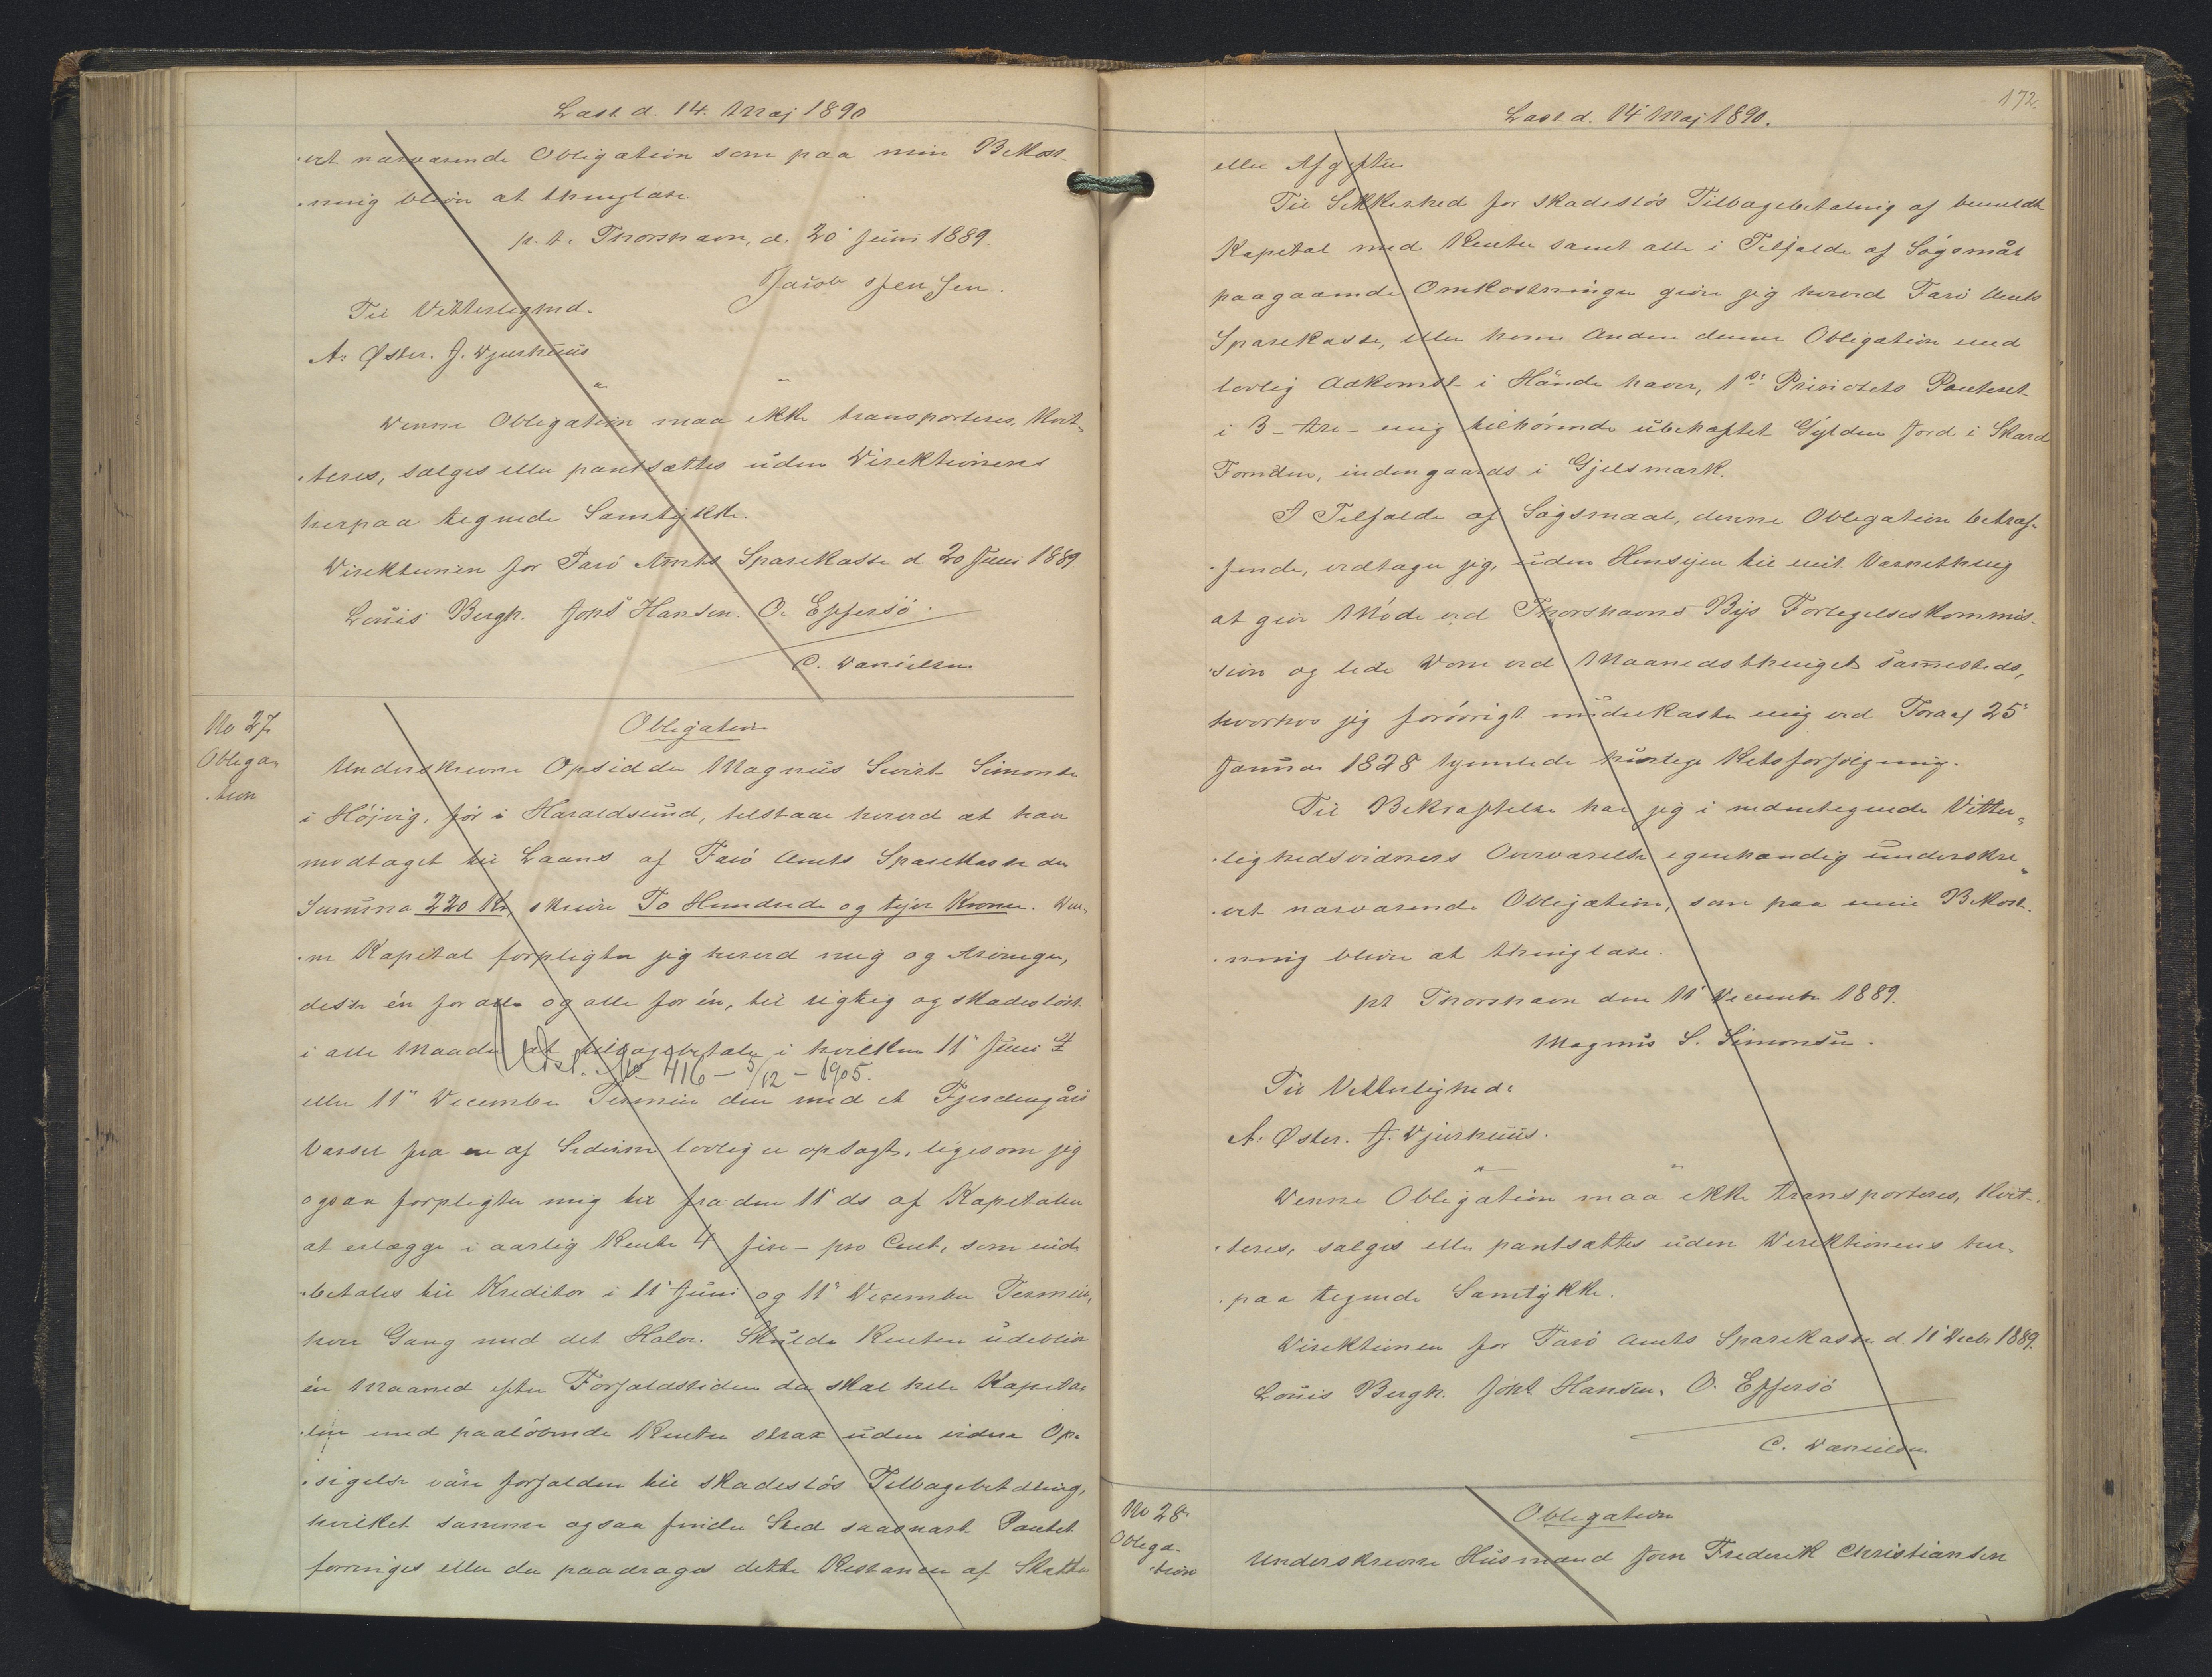 Læst d. 14. Maj 1890
·vet nærværende Obligation som paa min Bekost-
·ning bliver at thinglæse.
p. t. Thorshavn, d. 20' Juni 1889.
Jacob Jensen.
Til Vitterlighed.
A. Øster. J. Djurhuus
" "
Denne Obligation maa ikke transporteres, kvit-
·teres, sælges eller pantsættes uden Direktionens
herpaa tegnede Samtykke.
Direktionen for Færö Amts Sparekasse d. 20 Juni 1889
Louis Bergh. Johs Hansen. O. Effersö.
C. Danielsen
No 27.
Obliga-
·tion
Obligation
Underskrevne Opsidder Magnus Sivert Simonsen
i Höjvig, för i Haraldsund, tilstaar herved at have
modtaget til Laans af Færö Amts Sparekasse den
Summa 220 Kr, skriver To Hundrede og tyve Kroner. Den-
·ne Kapital forpligter jeg herved mig og Arvinger,
disse én for alle og alle for én, til rigtig og skadeslöst
i alle Maader at tilbagebetale i hvilken 11' Juni
Udsl. No 416 - 5/12 - 1905.
eller 11' December Termin den med et Fjerdingårs
Varsel fra en af Siderne lovlig er opsagt, ligesom jeg
ogsaa forpligter mig til fra den 11' ds af Kapitalen
at erlægge i aarlig Rente 4 - fire - pro Cent, som ind-
·betales til Kreditor i 11' Juni og 11' December Termin,
hver Gang med det Halve. Skulde Renten udeblive
én Maaned efter Forfaldstiden da skal hele Kapita-
·len med paalöbende Renter strax uden videre Op-
·sigelse være forfalden til skadeslös Tilbagebetaling,
hvilket samme ogsaa finder Sted saasnart Pantet
forringes eller der paadrages dette Restancer af Skatter
172.
Læst d. 14 Maj 1890.
eller Afgifter
Til Sikkerhed for skadeslös Tilbagebetaling af bemeldte
Kapital med Renter samt alle i Tilfælde af Sögsmål
paagaaende Omkostninger giver jeg herved Færö Amts
Sparekasse, eller hvem Anden denne Obligation med
lovlig Adkomst i Hænde haver, 1ste Prioritets Panteret
i 3 - tre - mig tilhörende ubehæftet Gylden Jord i Skard
Fornden, indengaards i Gjelsmark.
I Tilfælde af Sögsmaal, denne Obligation betræf-
·fende, vedtager jeg, uden Hensyn til mit Værnething
at give Möde ved Thorshavns Bys Forligelseskommis-
·sion og lide Dom ved Maanedsthinget sammesteds,
hvorhos jeg foröვrigt underkaster mig ved Foraf 25'
Januar 1828 hjemlede hurtige Retsforfölgning.
Til Bekræftelse har jeg i medundertegnede Vitter-
·lighedsvidners Overværelse egenhændig underskre-
·vet nærværende Obligation, som paa min Bekost-
·ning bliver at thinglæse.
pt Thorshavn den 11' December 1889.
Magnus S. Simonsen.
Til Vitterlighed:
A. Øster. J. Djurhuus.
" "
Denne Obligation maa ikke transporteres, kvit-
·teres, sælges eller pantsættes uden Direktionens her-
·paa tegnede Samtykke.
Direktionen for Færö Amts Sparekasse d. 11' Decbr 1889.
Louis Bergh. Johs Hansen. O. Effersö
C. Danielsen
No 28.
Obliga-
·tion
Obligation
Underskrevne Husmand Joen Frederik Christiansen